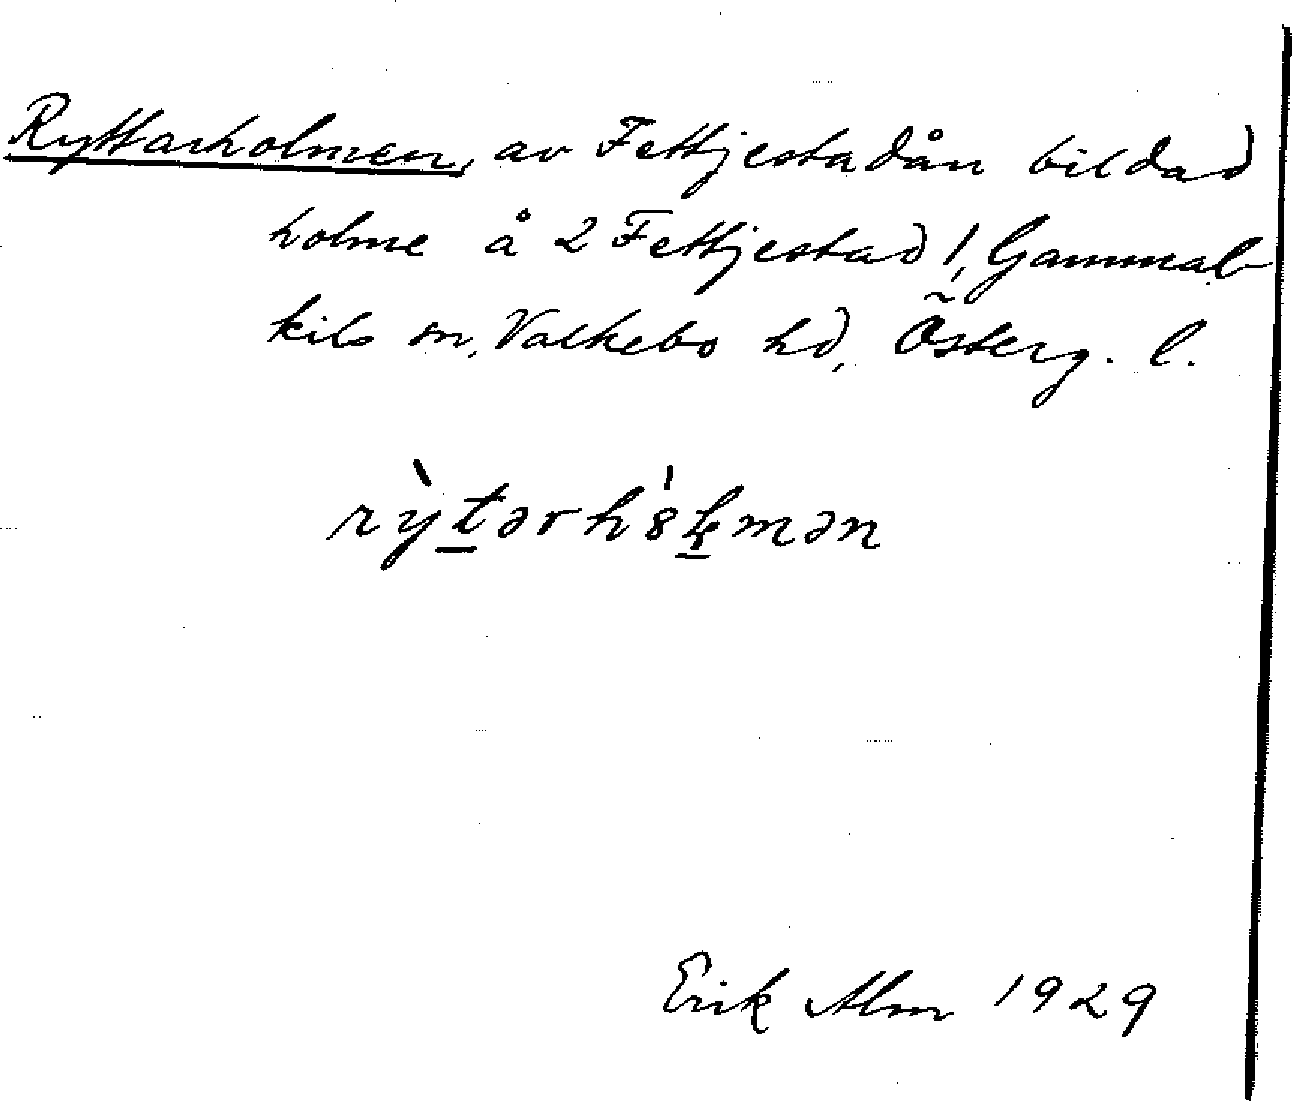 Ryttarholmen, av Fettjestadån bildad
holme å 2 Fettjestad 1, Gammal-
kils sn, Valkebo hd, Österg. l.
rỳt̲ərho̍ɫmən
Erik Alm 1929